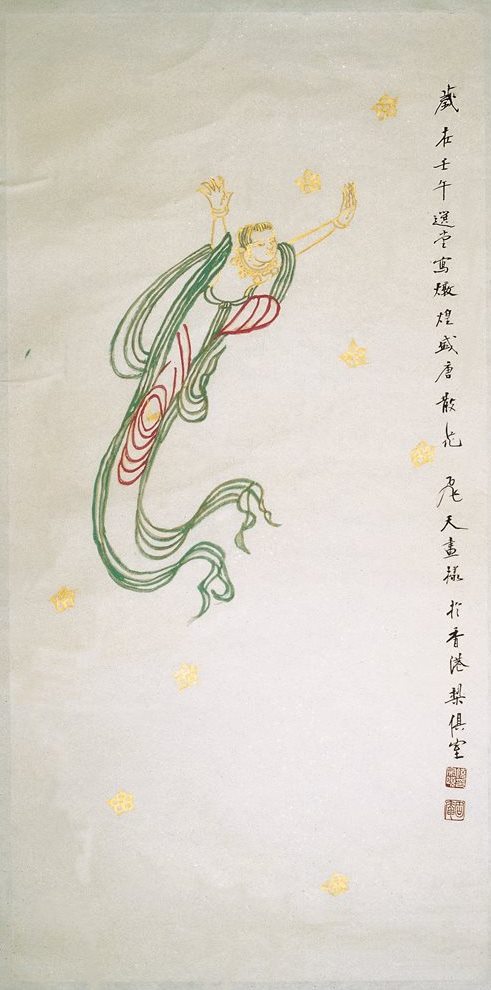 歲在壬午選堂寫燉煌盛唐散花飛天畫樣於香港梨俱室